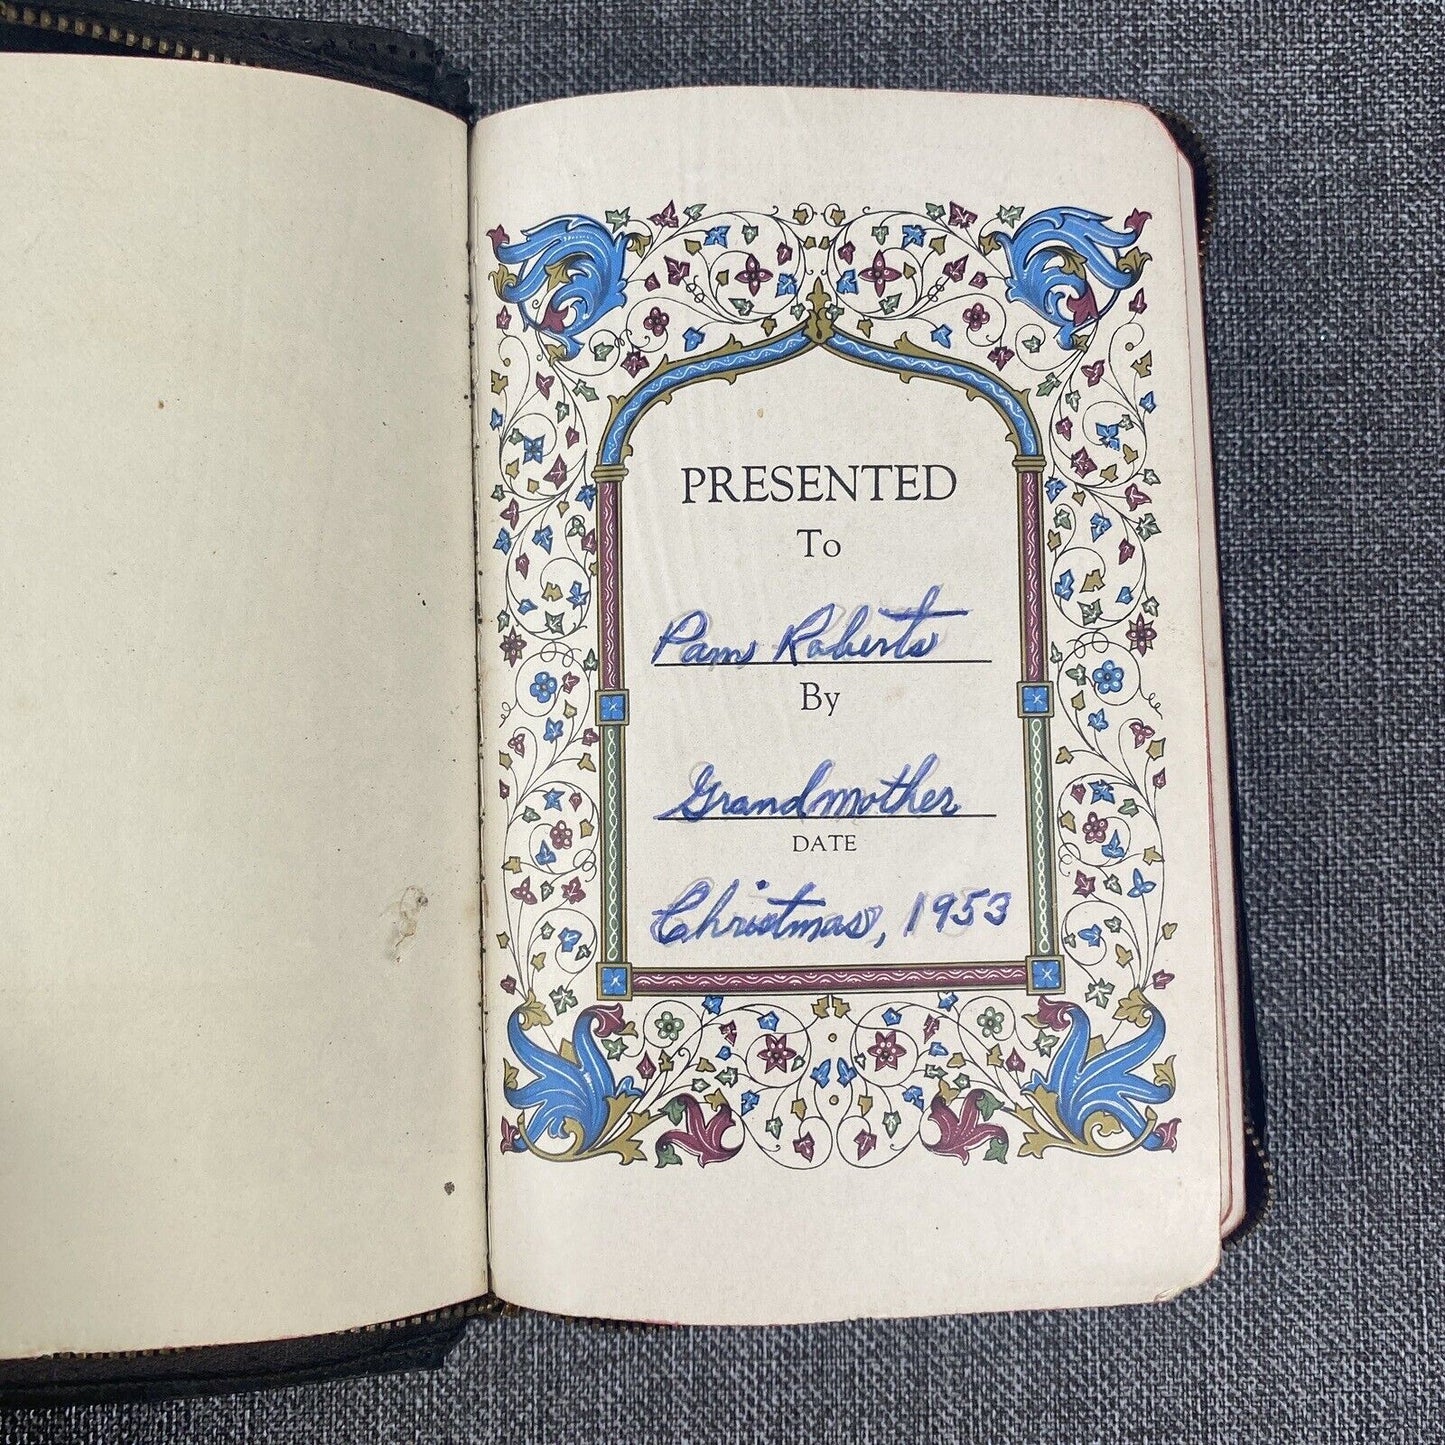 PRESENTED
To
Pam Roberts
By
Grandmother
DATE
Christmas, 1953